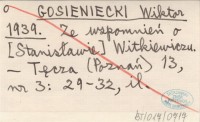 GOSIENIECKI Wiktor
1939. Ze wspomnień o
[Stanisławie] Witkiewiczu.
— Tęcza (Poznań) 13,
nr 3: 29-32, il.